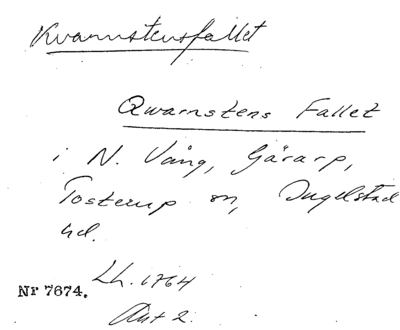 Kvarnstensfallet
Qwarnstens Fallet
i N. Vång, Gärarp,
Tosterup sn, Ingelstad
hd.
Lh. 1764
Nr 7674.
Akt 2.